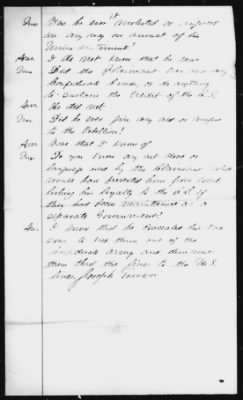 Ques Was he ever molested or injured
in any way on account of his
Union sentiments?
Ans I do not know that he was
Ques Did the claimant ever own any
Confederate bonds, or do anything
to sustain the credit of the C.S.
Ans He did not
Ques Did he ever give any aid or comfort
to the Rebellion?
Ans None that I know of
Ques Do you know any act done or
language used by the claimant which
would have prevented him from establishing
his loyalty to the C.S. if
they had been maintained as a
separate Government?
Ans I know that he
sons to keep them out of the
Confederate army and then sent
them thro the lines to the U.S.
lines, Joseph